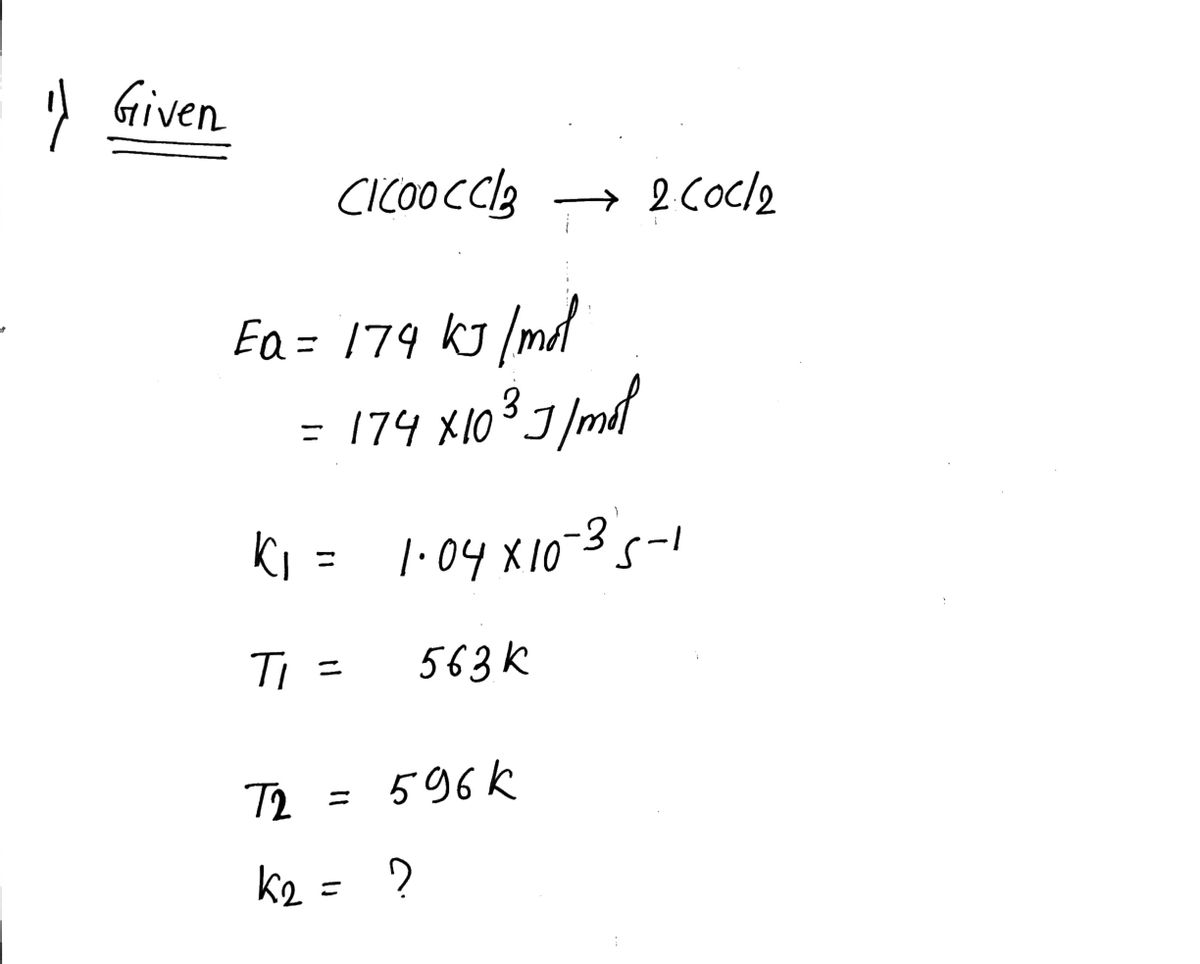 1) Given
ClCOOCCl3 → 2COCl2
Ea = 174 kJ/mol
= 174 x10³ J/mol
K1 = 1.04 x10⁻³ s⁻¹
T1 = 563 k
T2 = 596 k
k2 = ?